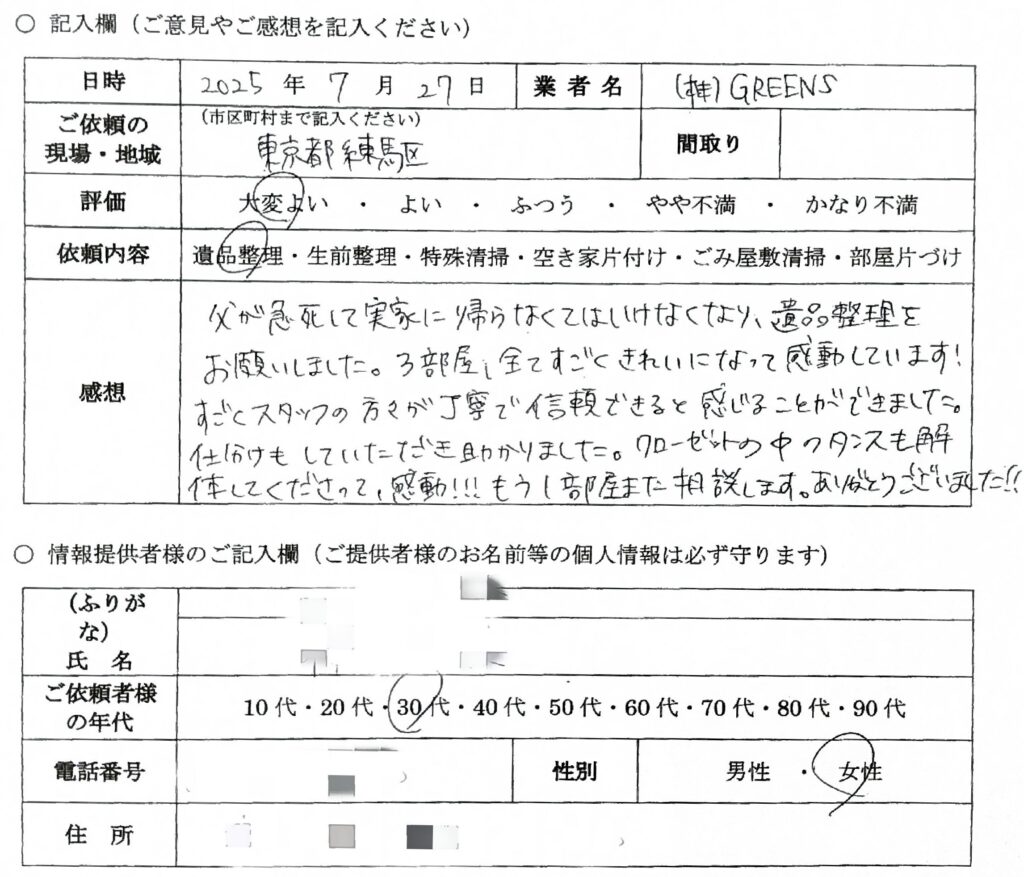 ○ 記入欄（ご意見やご感想を記入ください）
日時 2025 年 7 月 27 日 業者名 (株)GREENS
ご依頼の現場・地域 （市区町村まで記入ください） 間取り
東京都練馬区
評価 大変よい ・ よい ・ ふつう ・ やや不満 ・ かなり不満
依頼内容 遺品整理・生前整理・特殊清掃・空き家片付け・ごみ屋敷清掃・部屋片づけ
感想
父が急死して実家に帰らなくてはいけなくなり、遺品整理を
お願いしました。3部屋、全てすごくきれいになって感動しています!
すごくスタッフの方々が丁寧で信頼できると感じることができました。
仕分けもしていただき助かりました。クローゼットの中のタンスも解
体してくださって、感動!!!もう1部屋また相談します。ありがとうございました!!
○ 情報提供者様のご記入欄（ご提供者様のお名前等の個人情報は必ず守ります）
（ふりがな）
氏 名
ご依頼者様の年代 10代・20代・30代・40代・50代・60代・70代・80代・90代
電話番号 性別 男性 ・ 女性
住 所